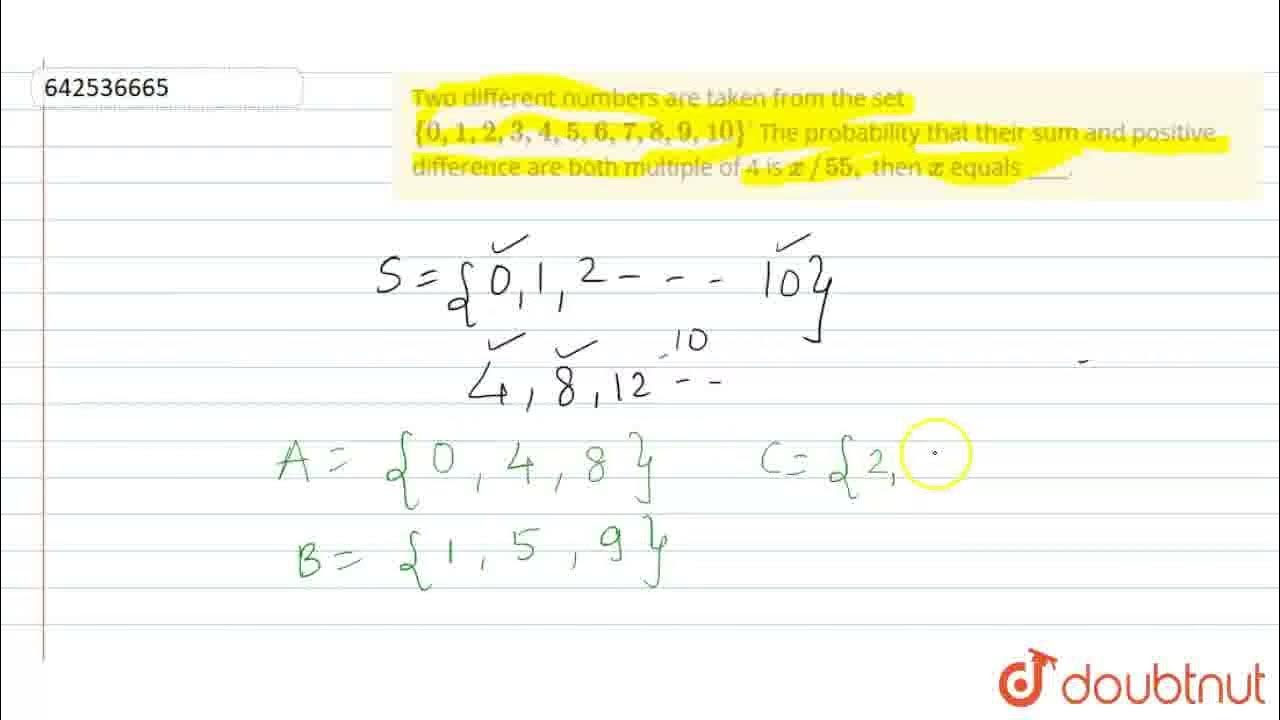 642536665
Two different numbers are taken from the set
{0, 1, 2, 3, 4, 5, 6, 7, 8, 9, 10}. The probability that their sum and positive
difference are both multiple of 4 is x / 55, then x equals ___.
S = {0, 1, 2 - - - 10}
10
4, 8, 12 - -
A = {0, 4, 8} C = {2,
B = {1, 5, 9}
doubtnut